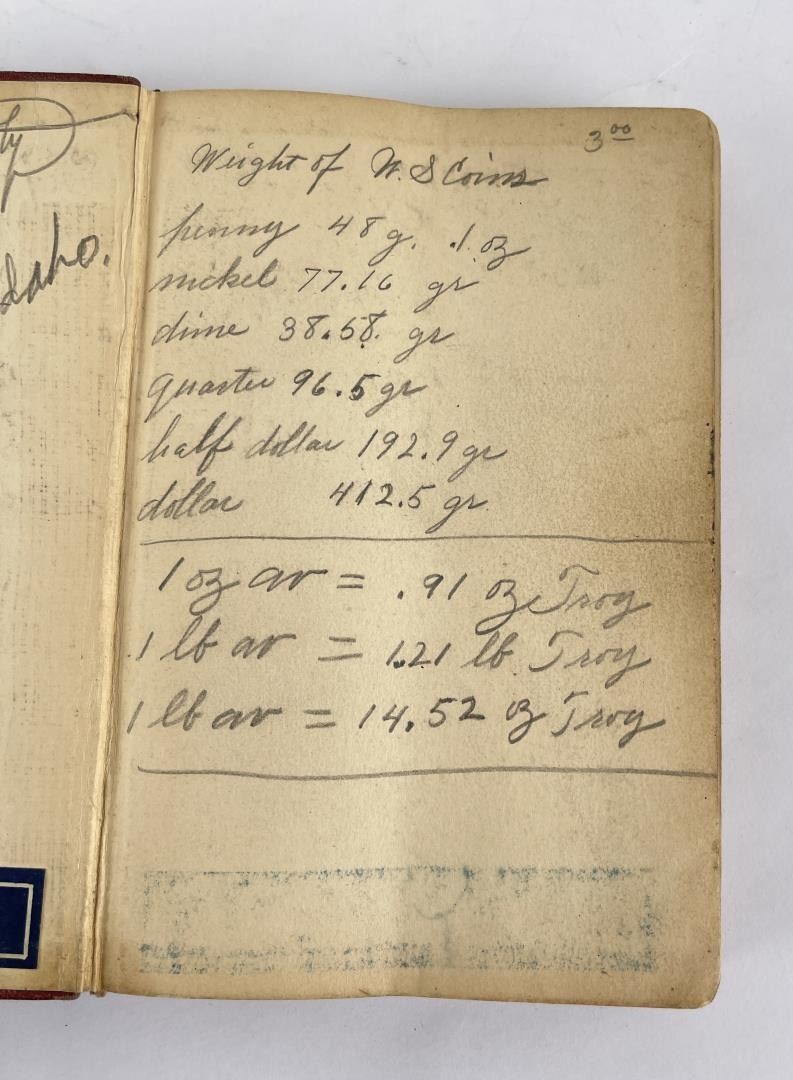 3 00
Weight of U.S Coins
penny 48 g. .1 oz
nickel 77.16 gr
dime 38.58. gr
quarter 96.5 gr
half dollar 192.9 gr
dollar 412.5 gr
1 oz av = .91 oz Troy
1 lb av = 1.21 lb Troy
1 lb av = 14.52 oz Troy
daho.